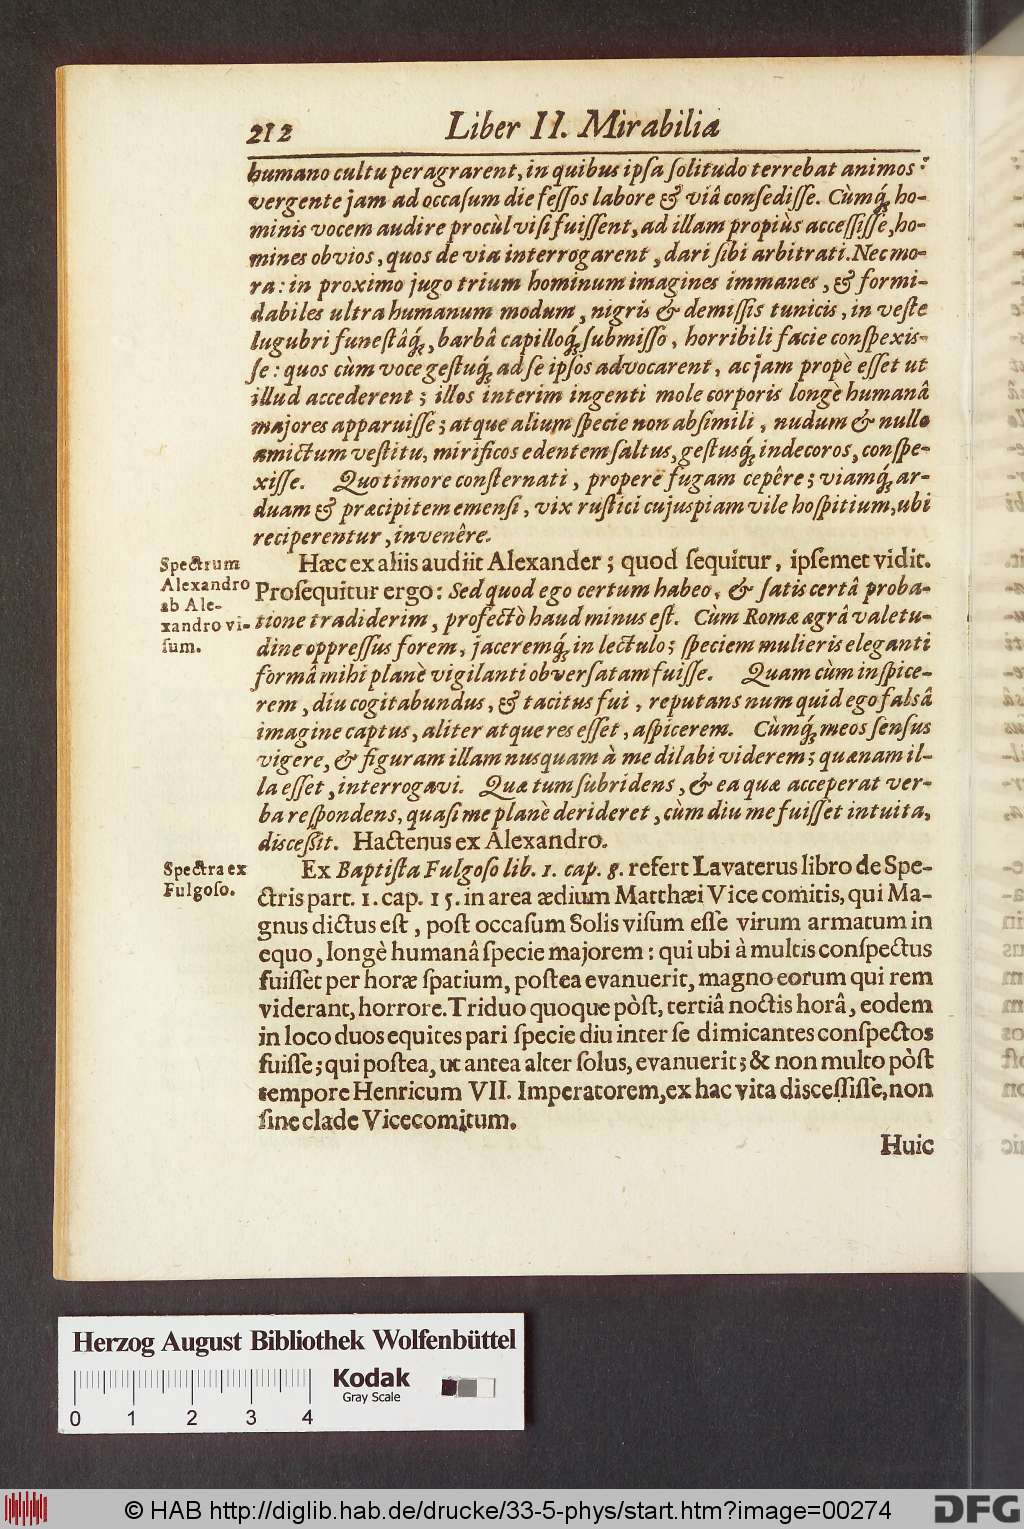 212 Liber II. Mirabilia
humano cultu peragrarent, in quibus ipſa ſolitudo terrebat animos:
vergente jam ad occaſum die feſſos labore & viâ conſediſſe. Cùmq́; ho-
minis vocem audire procùl viſi fuiſſent, ad illam propiùs acceſſiſſe, ho-
mines obvios, quos de via interrogarent, dari ſibi arbitrati. Nec mo-
ra: in proximo jugo trium hominum imagines immanes, & formi-
dabiles ultra humanum modum, nigris & demiſſis tunicis, in veſte
lugubri funeſtâq́;, barbâ capilloq́; ſubmiſſo, horribili facie conſpexiſ-
ſe: quos cùm voce geſtuq́; ad ſe ipſos advocarent, ac jam propè eſſet ut
illud accederent; illos interim ingenti mole corporis longè humanâ
majores apparuiſſe; atque alium ſpecie non abſimili, nudum & nullo
amictum veſtitu, mirificos edentem ſaltus, geſtusq́; indecoros, conſpe-
xiſſe. Quo timore conſternati, properè fugam cepêre; viamq́; ar-
duam & præcipitem emenſi, vix ruſtici cujuspiam vile hoſpitium, ubi
reciperentur, invenêre.
Spectrum
Alexandro
ab Ale-
xandro vi-
ſum.
Hæc ex aliis audiit Alexander; quod ſequitur, ipſemet vidit.
Proſequitur ergo: Sed quod ego certum habeo, & ſatis certâ proba-
tione tradiderim, profectò haud minus eſt. Cùm Romæ ægrâ valetu-
dine oppreſſus forem, jaceremq́; in lectulo; ſpeciem mulieris eleganti
formâ mihi planè vigilanti obverſatam fuiſſe. Quam cùm inſpice-
rem, diu cogitabundus, & tacitus fui, reputans num quid ego falsâ
imagine captus, aliter atque res eſſet, aſpicerem. Cùmq́; meos ſenſus
vigere, & figuram illam nusquam à me dilabi viderem; quænam il-
la eſſet, interrogavi. Quæ tum ſubridens, & ea quæ acceperat ver-
ba reſpondens, quaſi me planè derideret, cùm diu me fuiſſet intuita,
diſceſſit. Hactenus ex Alexandro.
Spectra ex
Fulgoſo.
Ex Baptiſta Fulgoſo lib. 1. cap. 8. refert Lavaterus libro de Spe-
ctris part. 1. cap. 15. in area ædium Matthæi Vice comitis, qui Ma-
gnus dictus eſt, poſt occaſum Solis viſum eſſe virum armatum in
equo, longè humanâ ſpecie majorem: qui ubi à multis conſpectus
fuiſſet per horæ ſpatium, poſtea evanuerit, magno eorum qui rem
viderant, horrore. Triduo quoque pòſt, tertiâ noctis horâ, eodem
in loco duos equites pari ſpecie diu inter ſe dimicantes conſpectos
fuiſſe; qui poſtea, ut antea alter ſolus, evanuerit; & non multo pòſt
tempore Henricum VII. Imperatorem, ex hac vita diſceſſiſſe, non
ſine clade Vicecomitum.
Huic
Herzog August Bibliothek Wolfenbüttel
Kodak
Gray Scale
0 1 2 3 4
© HAB http://diglib.hab.de/drucke/33-5-phys/start.htm?image=00274
DFG